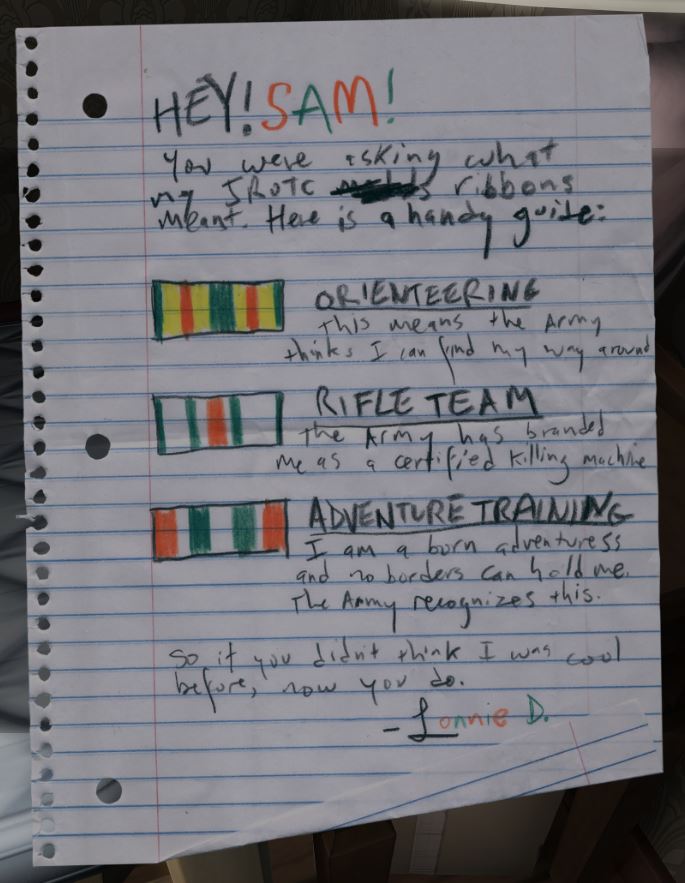 HEY! SAM!
You were asking what
my JROTC ribbons
meant. Here is a handy guide:
ORIENTEERING
This means the Army
thinks I can find my way around
RIFLE TEAM
The Army has branded
me as a certified killing machine
ADVENTURE TRAINING
I am a born adventuress
and no borders can hold me.
The Army recognizes this.
So if you didn't think I was cool
before, now you do.
- Lonnie D.